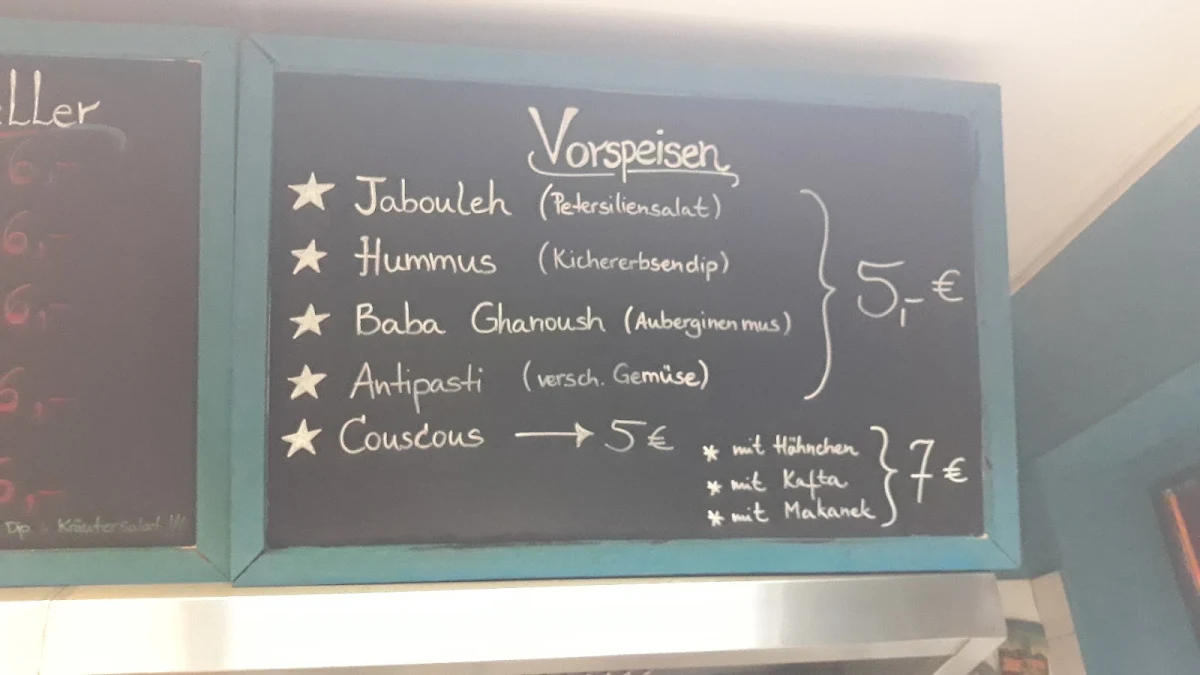 ller
6,-
6,-
6,-
6,-
5,-
Dip & Kräutersalat !!!
Vorspeisen
Tabouleh (Petersiliensalat)
Hummus (Kichererbsendip)
Baba Ghanoush (Auberginenmus)
Antipasti (versch. Gemüse)
5,- €
Couscous → 5 €
* mit Hähnchen
* mit Kafta
* mit Makanek
7 €